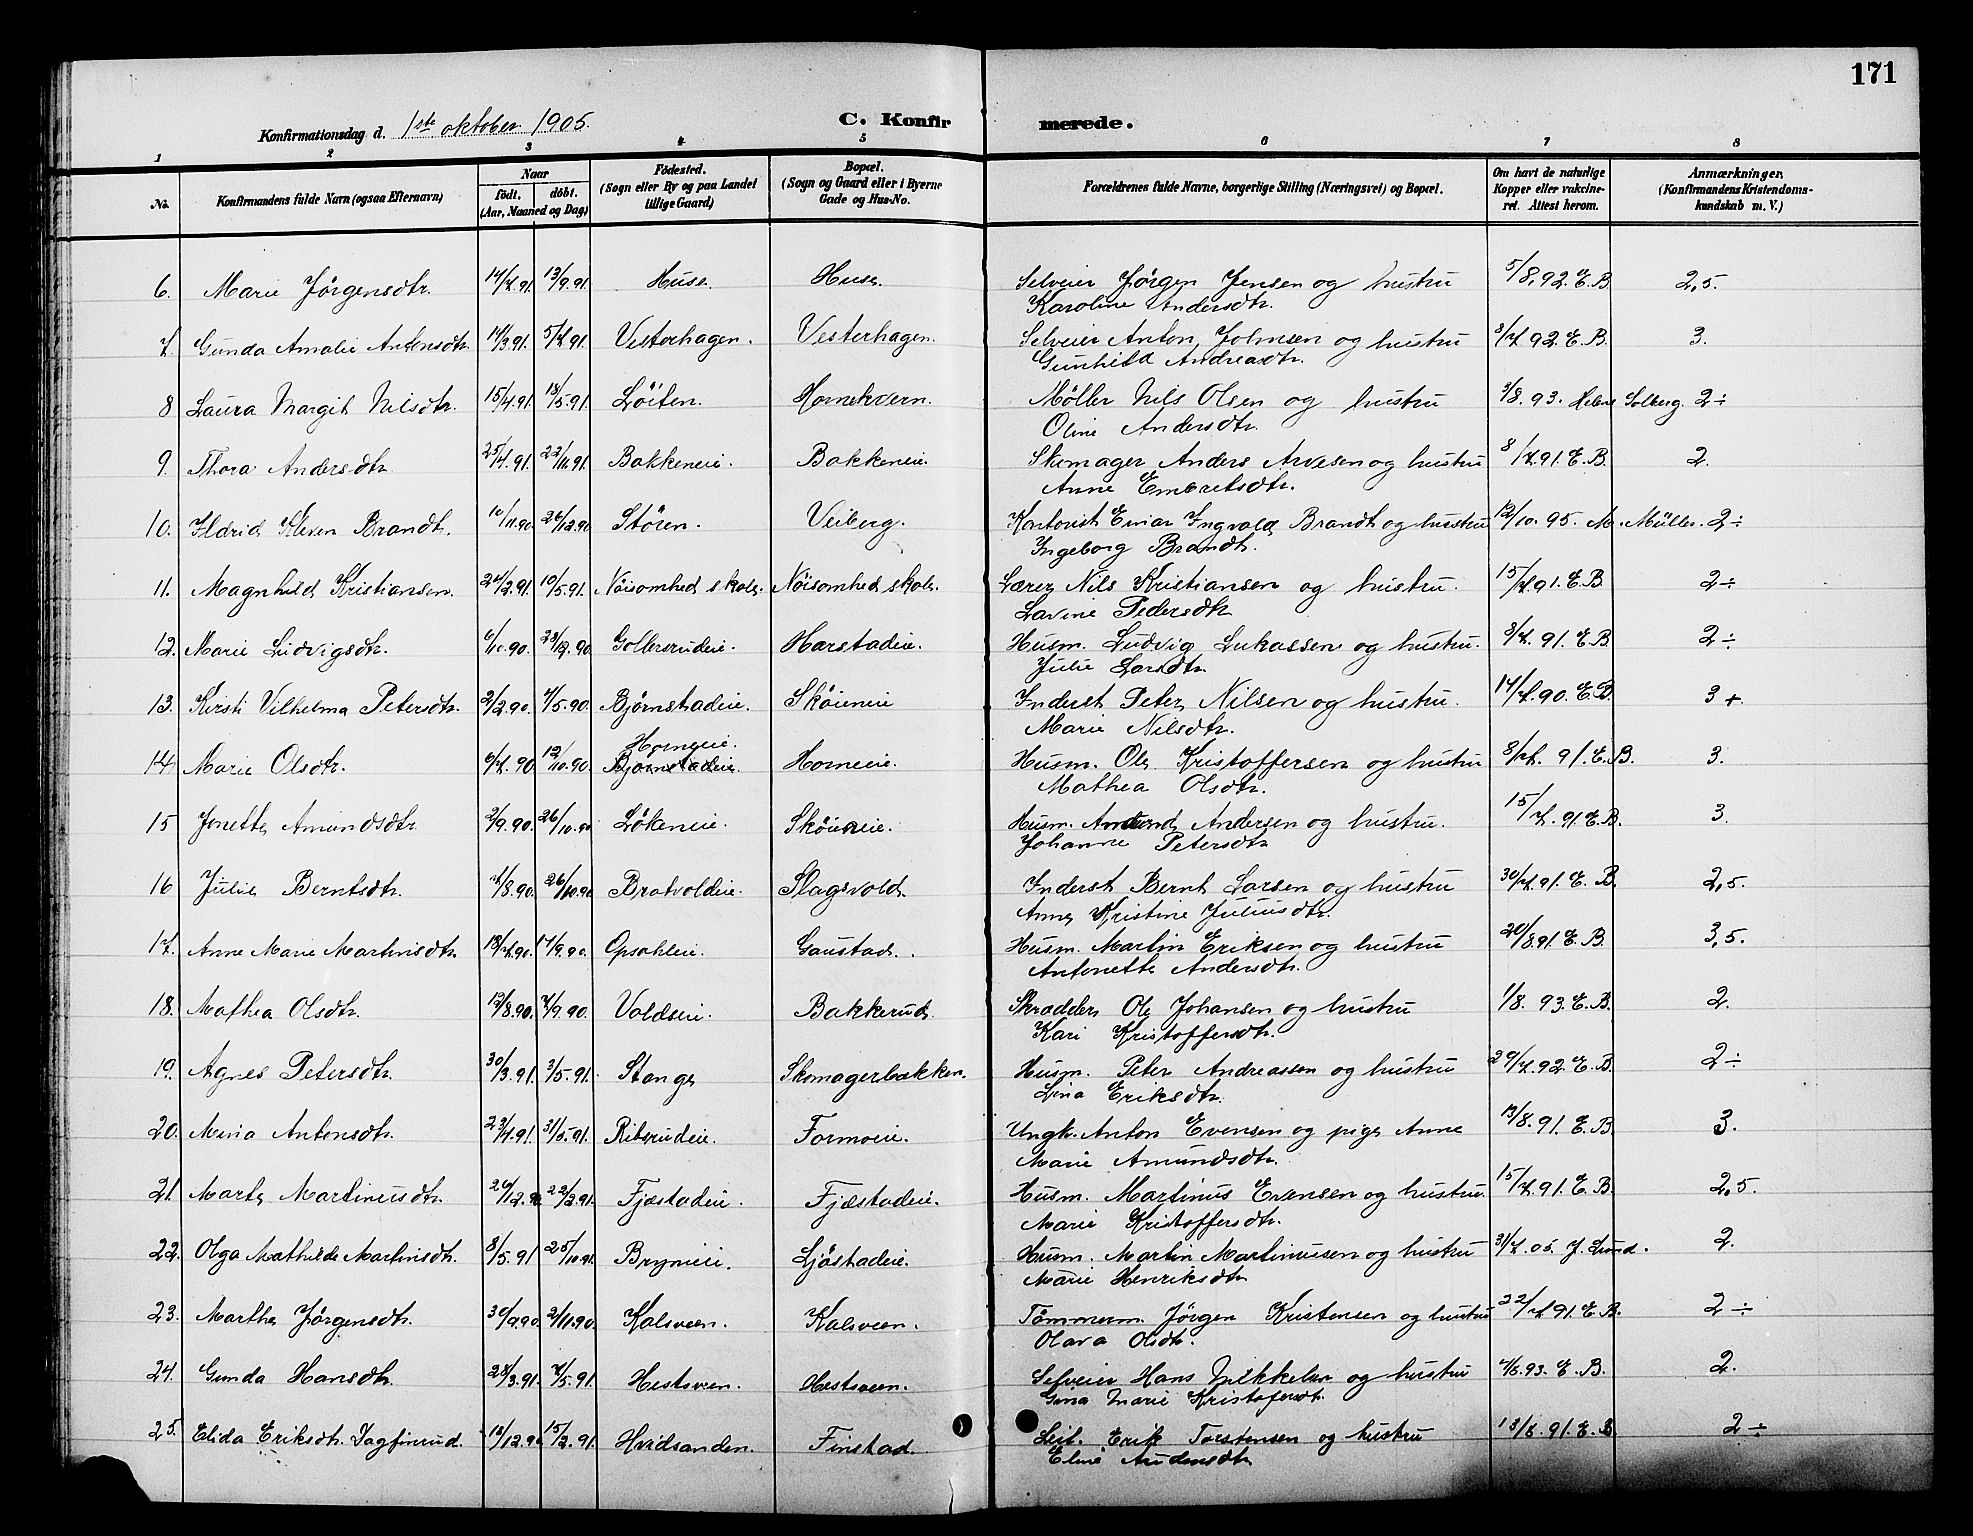 171
Konfirmationsdag d. 1ste oktober 1905.
C. Konfir merede.
1 2 3 4 5 6 7 8
No. Konfirmandens fulde Navn (ogsaa Efternavn) Naar født. døbt. (Aar, Maaned og Dag) Fødested. (Sogn eller By og paa Landet tillige Gaard) Bopæl. (Sogn og Gaard eller i Byerne Gade og Hus-No. Forældrenes fulde Navne, borgerlige Stilling (Næringsvei) og Bopæl. Om havt de naturlige Kopper eller vakcineret. Attest herom. Anmærkninger, (Konfirmandens Kristendomskundskab m. V.)
6. Marie Jørgensdtr. 14/7.91. 13/9.91. Huse. Huse. Selveier Jørgen Jensen og hustru 5/8.92. E.B. 2,5.
Karoline Andersdtr.
7. Gunda Amalie Antonsdtr. 14/3.91. 5/7.91. Vesterhagen. Vesterhagen. Selveier Anton Johnsen og hustru 3/7.92. E.B. 3.
Gunhild Andreasdtr.
8 Laura Margit Nilsdtr. 15/4.91. 18/5.91. Løiten. Hornekvern. Møller Nils Olsen og hustru 3/8.93. Helene Solberg. 2÷
Oline Andersdtr.
9. Thora Andersdtr. 25/4.91. 22/11.91. Bakkeneie. Bakkeneie. Skomager Anders Arvesen og hustru 8/7.91. E.B. 2.
Anne Embretsdtr.
10. Kleven Brandt. 10/11.90. 26/12.90. Støren. Veiberg. Kontorist Einar Ingvald Brandt og hustru 12/10.95. M. Müller. 2÷
Ingeborg Brandt.
11. Magnhild Kristiansen. 24/2.91. 10/5.91. Nøisomhed skole. Nøisomhed skole. Lærer Nils Kristiansen og hustru. 15/7.91. E.B. 2÷
Lavine Pedersdtr.
12. Marie Ludvigsdtr. 6/10.90. 28/12.90 Gollerrudeie. Harstadeie. Husm. Ludvig Lukassen og hustru. 3/7.91. E.B. 2÷
Julie Larsdtr.
13. Kirsti Vilhelma Petersdtr. 2/2.90. 4/5.90. Bjørnstadeie. Skøieneie Inderst Peter Nilsen og hustru. 14/7.90. E.B. 3+.
Marie Nilsdtr.
Horneie.
14 Marie Olsdtr. 6/7.90. 12/10.90. Bjørnstadeie. Horneie. Husm. Ole Kristoffersen og hustru 8/7. 91. E.B. 3.
Mathea Olsdtr.
15 Jonette Amundsdtr. 2/9.90. 26/10.90 Løkeneie. Skøieneie. Husm. Amund Andersen og hustru. 15/7.91. E.B. 3.
Johanne Petersdtr
16 Julie Berntsdtr. 7/8.90. 26/10.90 Bratvoldeie. Slagsvold. Inderst Bernt Larsen og hustru 30/7.91. E.B. 2,5.
Anne Kristine Juliusdtr.
17. Anne Marie Martinsdtr. 18/7.90. 14/9.90. Opsahleie. Gaustad. Husm. Martin Eriksen og hustru 20/8.91. E.B. 3,5.
Antonette Andersdtr.
18. Mathea Olsdtr. 12/8.90. 7/9.90. Voldseie. Bakkerud. Skrædder Ole Johansen og hustru 1/8. 93. E.B. 2.
Kari Kristoffersdtr.
19. Agnes Petersdtr. 30/3.91. 3/5.91. Stange Skomagerbakken. Husm. Peter Andreassen og hustru 29/7.92. E.B. 2÷
Lina Eriksdtr.
20. Mina Antonsdtr. 23/4.91. 31/5.91. Riberudeie. Formoeie. Ungk. Anton Evensen og pige Anne 13/8.91. E.B. 3.
Marie Amundsdtr.
21. Marte Martinusdtr. 26/12.90 22/2.91. Fjæstadeie. Fjæstadeie. Husm. Martinus Evensen og hustru. 15/7.91. E.B. 2,5.
Marie Kristoffersdtr.
22. Olga Mathilde Martinsdtr. 8/5.91 25/10.91. Brynieie. Ljøstadeie. Husm. Martin Martinusen og hustru 31/7.05. J. Lund. 2.
Marie Henriksdtr
23. Marthe Jørgensdtr. 30/9.90. 2/11.90. Kalsveen. Kalsveen. Tømmerm. Jørgen Kristensen og hustru 22/7.91. E.B. 2÷
Olava Olsdtr.
24. Gunda Hansdtr. 28/3.91. 7/5.91. Hestsveen. Hestsveen. Selveier Hans Mikkelsen og hustru 7/6.93. E.B. 2.
Gina Marie Kristofersdtr.
25. Elida Eriksdtr. Dagfinrud. 18/12.90 15/2.91. Hvidsanden. Finstad. Leil. Erik Torstensen og hustru 13/8.91. E.B. 2÷
Eline Audensdtr